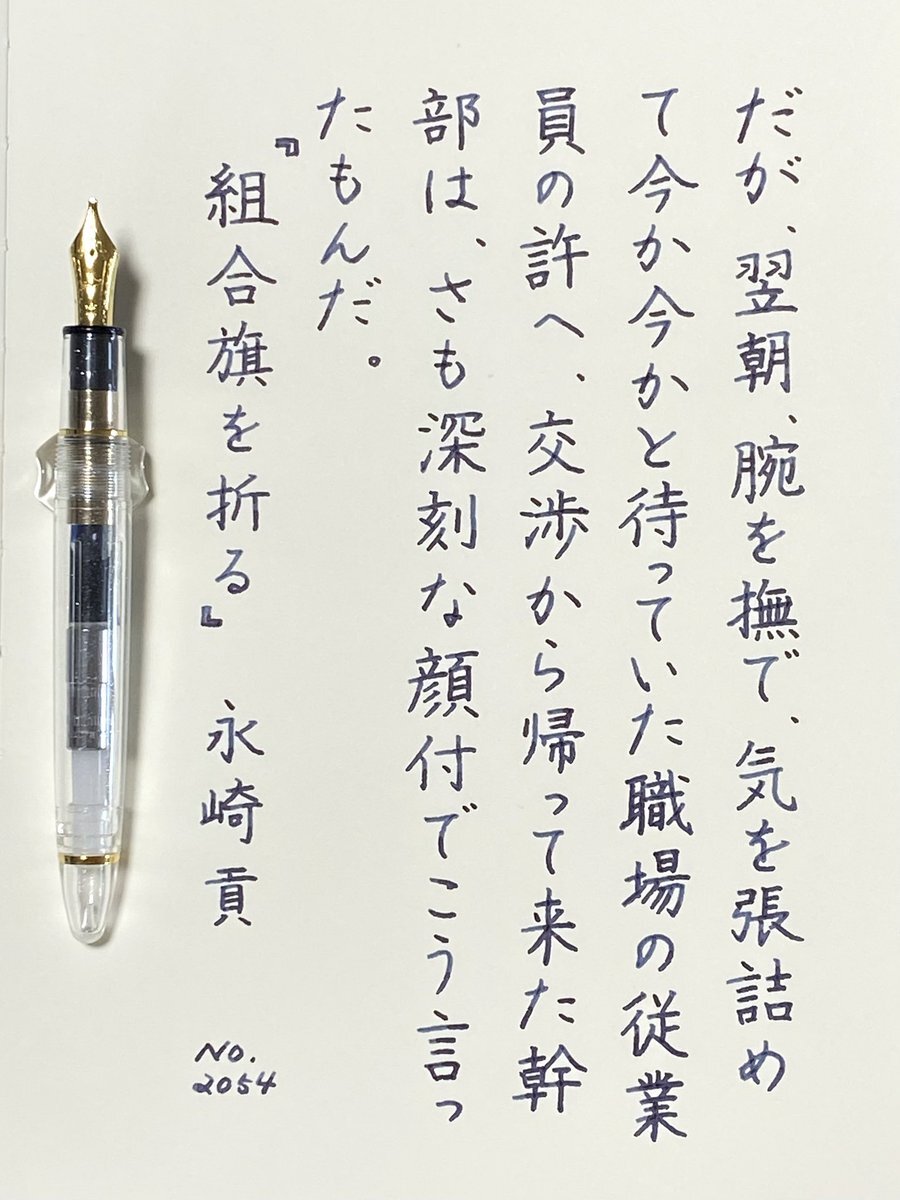 だが、翌朝、腕を撫で、気を張詰め
て今か今かと待っていた職場の従業
員の許へ、交渉から帰って来た幹
部は、さも深刻な顔付でこう言っ
たもんだ。
『組合旗を折る』 永崎貢
No.
2054